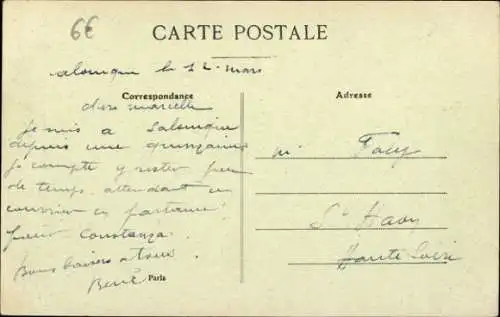 6€
CARTE POSTALE
Salonique le 12 mars
Correspondance
Adresse
chers marcelle
Je suis a Salonique
depuis une quinzaine
je compte y rester peu
de temps. attendant un
courrier en partance
pour Constanza.
Bons baisers a tous
René
Paris
mr Faey
St Haon
Haute Loire